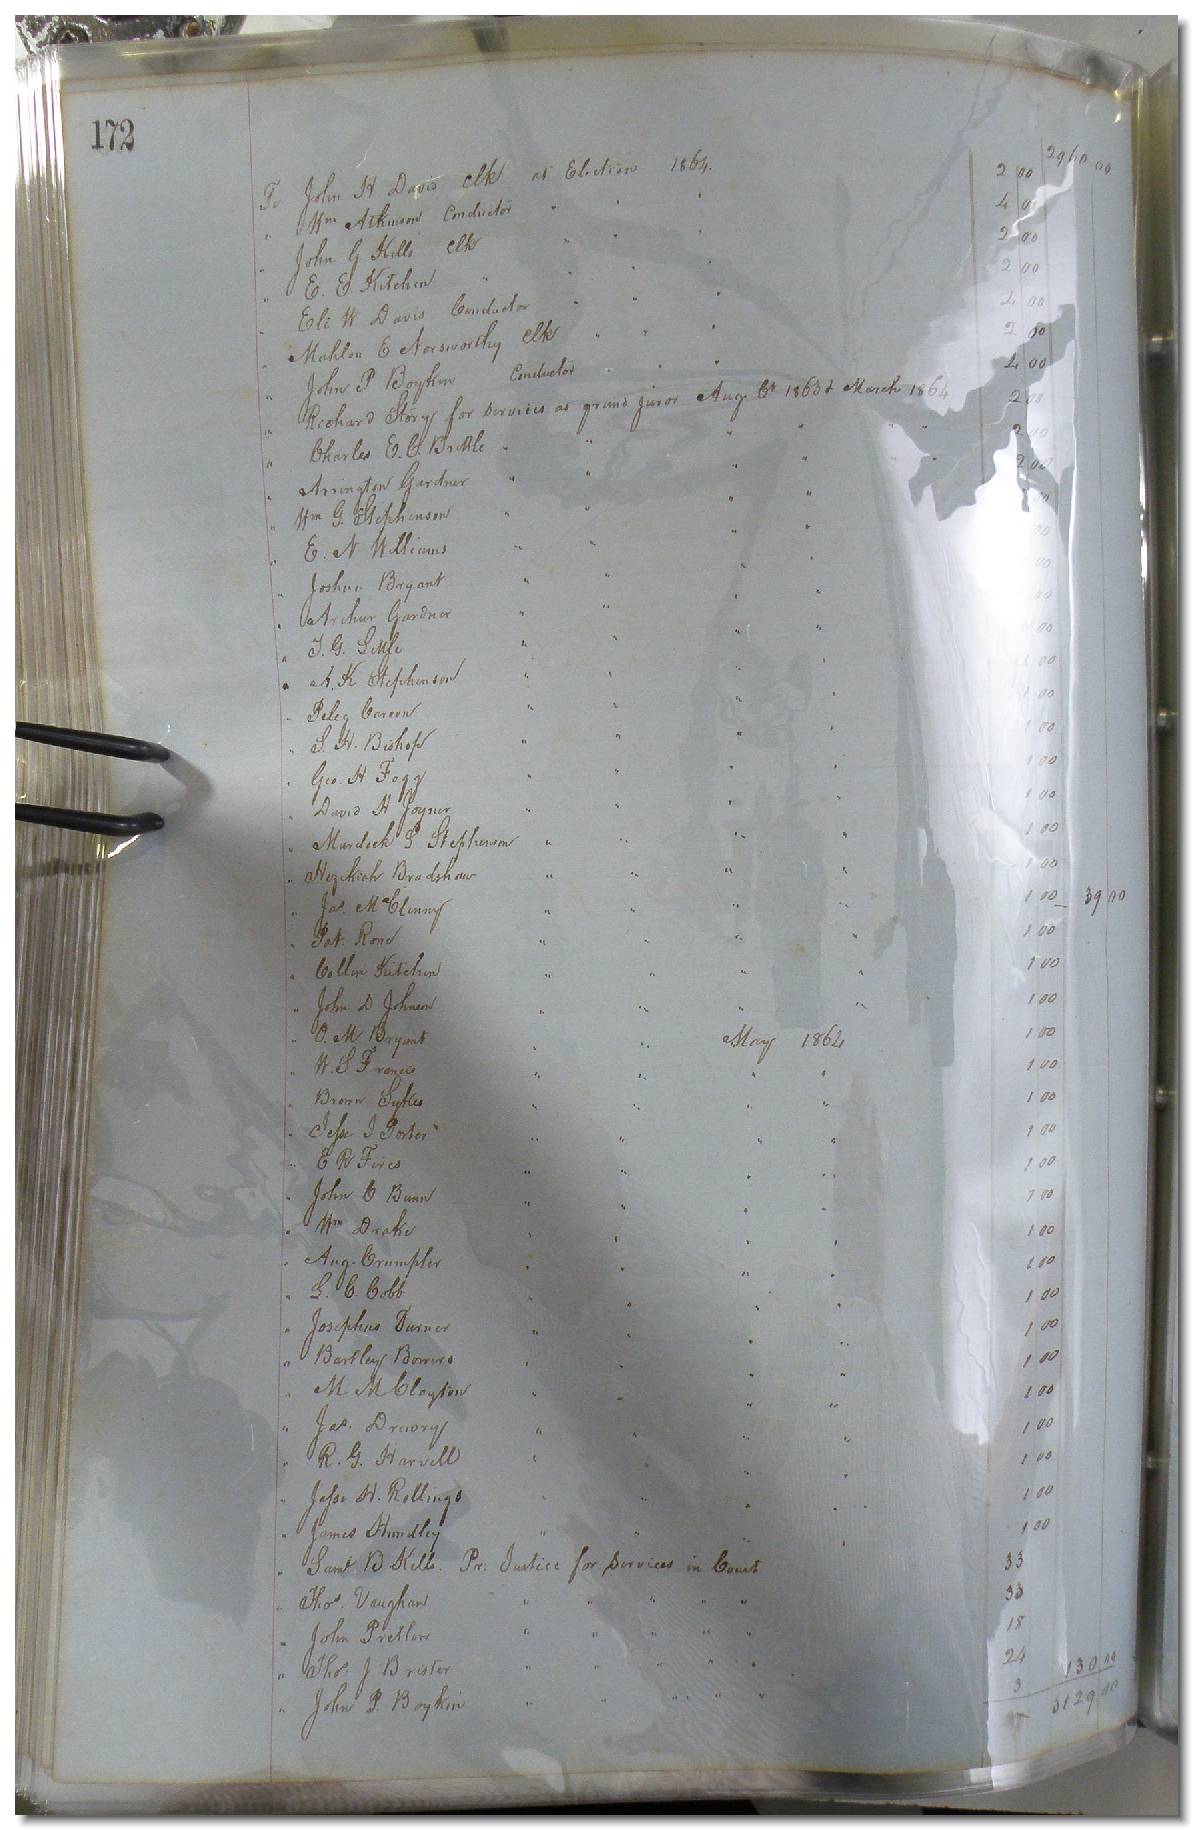 172
2960 00
To John H Davis clk at Election 1864. 2 00
" Wm Atkinson Conductor " " " 4 00
" John G Kello clk " " " 2 00
" E. E Kitchen " " " " 2 00
" Eli W Davis Conductor " " " 4 00
" Mahlon E Norsworthy clk " " " 2 00
" John P Boykin Conductor " " " 4 00
" Richard Story for services as grand juror Aug. Ct 1863 & March 1864 2 00
" Charles E. C. Brittle " " " " " " 2 00
" Arrington Gardner " " " " " " 2 00
" Wm G. Stephenson " " " " 00
" E. N Williams " " " " 00
" Joshua Bryant " " " " 00
" Arthur Gardner " " " " 00
" T. G. Little " " " " 00
" A. K Stephenson " " " " 1 00
" Peleg " " " " 1 00
" S. H. Bishop " " " " 1 00
" Geo. H Fogg " " " " 1 00
" David H Joyner " " " " 1 00
" Murdock S Stephenson " " " " 1 00
" Hezekiah Bradshaw " " " " 1 00
" Jas. McClenny " " " " 1 00 39 00
" Pat. Rone " " " " 1 00
" Collin Kitchen " " " " 1 00
" John D Johnson " " " " 1 00
" C. M Bryant " " May 1864 1 00
" W. S Francis " " " " 1 00
" Brown Sykes " " " " 1 00
" Jesse J Porter " " " " 1 00
" E R Fires " " " " 1 00
" John C Bunn " " " " 1 00
" Wm Drake " " " " 1 00
" Aug. Crumpler " " " " 1 00
" L. C. Cobb " " " " 1 00
" Josephus Turner " " " " 1 00
" Bartley Bowers " " " " 1 00
" M M Clayton " " " " 1 00
" Jas. Drewry " " " " 1 00
" R. G. Harvell " " " " 1 00
" Jesse H. Rollings " " " " 1 00
" James Hundley " " " " 1 00
" Saml B Kello. Pr. Justice for services in Court 33
" Thos. Vaughan " " " " " 33
" John Pretlow " " " " " 18
" Thos. J Brister " " " " " 24
" John P. Boykin " " " " " 3 130 00
3129 00